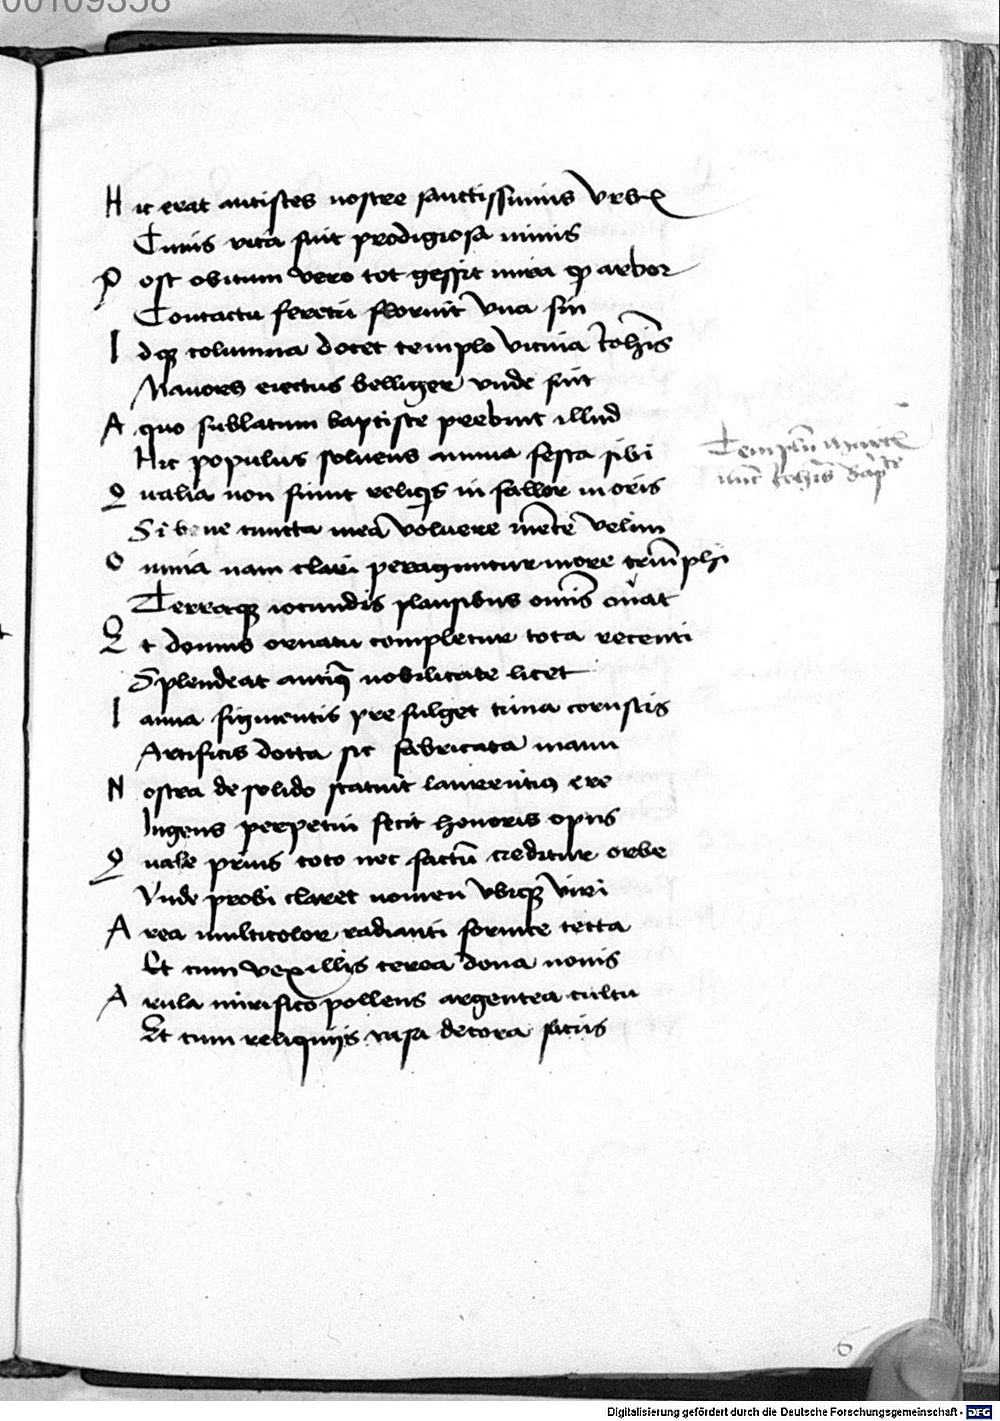 00109358
Hic erat antistes nostre sanctissimus Vrbis
Cuius vita fuit prodigiosa nimis
Post obitum vero tot gessit mira qͥ arbor
Contactu feretri floruit vna sui
Idqꝫ columna docet templo vicina Iohīs
Mauors erectus belliger vnde fuit
A quo sublatum baptiste prebuit illud
Hic populus soluens annua festa sibi
Qualia non fiunt reliqis in fallor in oris
Si bene cuncta mea voluere mēte velim
Omnia nam clari peraguntur more triūphi
Terraqꝫ iocundis plausibus omīs ouat
Et domus ornatu completur tota recenti
Splendeat antiq̄ nobilitate licet
Ianua figmentis prefulget trina coruscis
Artificis docta sic fabricata manu
Nostra de solido statuit laurentiꝰ ere
Ingens perpetui fecit honoris opus
Quale prius toto nec factū creditur orbe
Vnde probi claret nomen vbiqꝫ viri
Area multicolor radianti fornice tecta
Et cum vexillis cerea dona nouis
Arula mirifico pollens argentea cultu
Et cum reliquijs vasa decora sacris
Templū martis
nūc Iohīs bap̄te
6
Digitalisierung gefördert durch die Deutsche Forschungsgemeinschaft - DFG